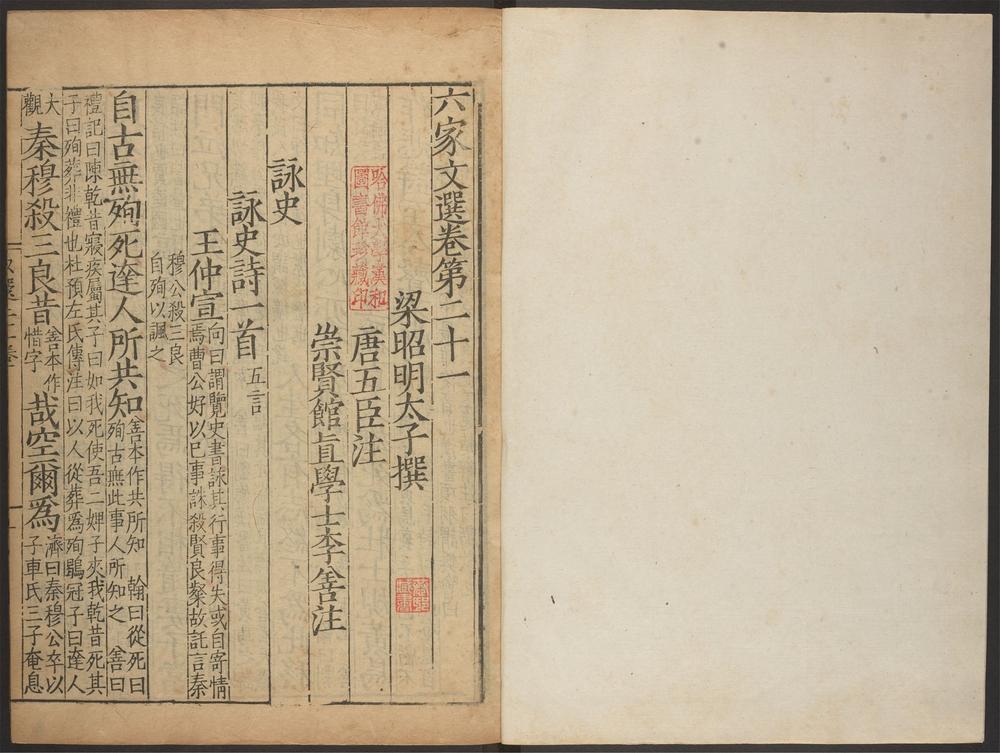 六家文選卷第二十一
梁昭明太子撰
哈佛大學漢和
圖書館珍藏印
唐五臣注
崇賢館直學士李善注
詠史
詠史詩一首五言
王仲宣向曰謂覽史書詠其行事得失或自寄情
焉曹公好以巳事誅殺賢良粲故託言秦
穆公殺三良
自殉以諷之
自古無殉死達人所共知善本作共所知 翰曰從死曰
殉古無此事人所知之 善曰
禮記曰陳乾昔寢疾屬其子曰如我死使吾二婢子夾我乾昔死其
子曰殉葬非禮也杜預左氏傳注曰以人從葬爲殉鶡冠子曰達人
大
觀
秦穆殺三良昔善本作
惜字
哉空爾爲濟曰秦穆公卒以
子車氏三子奄息